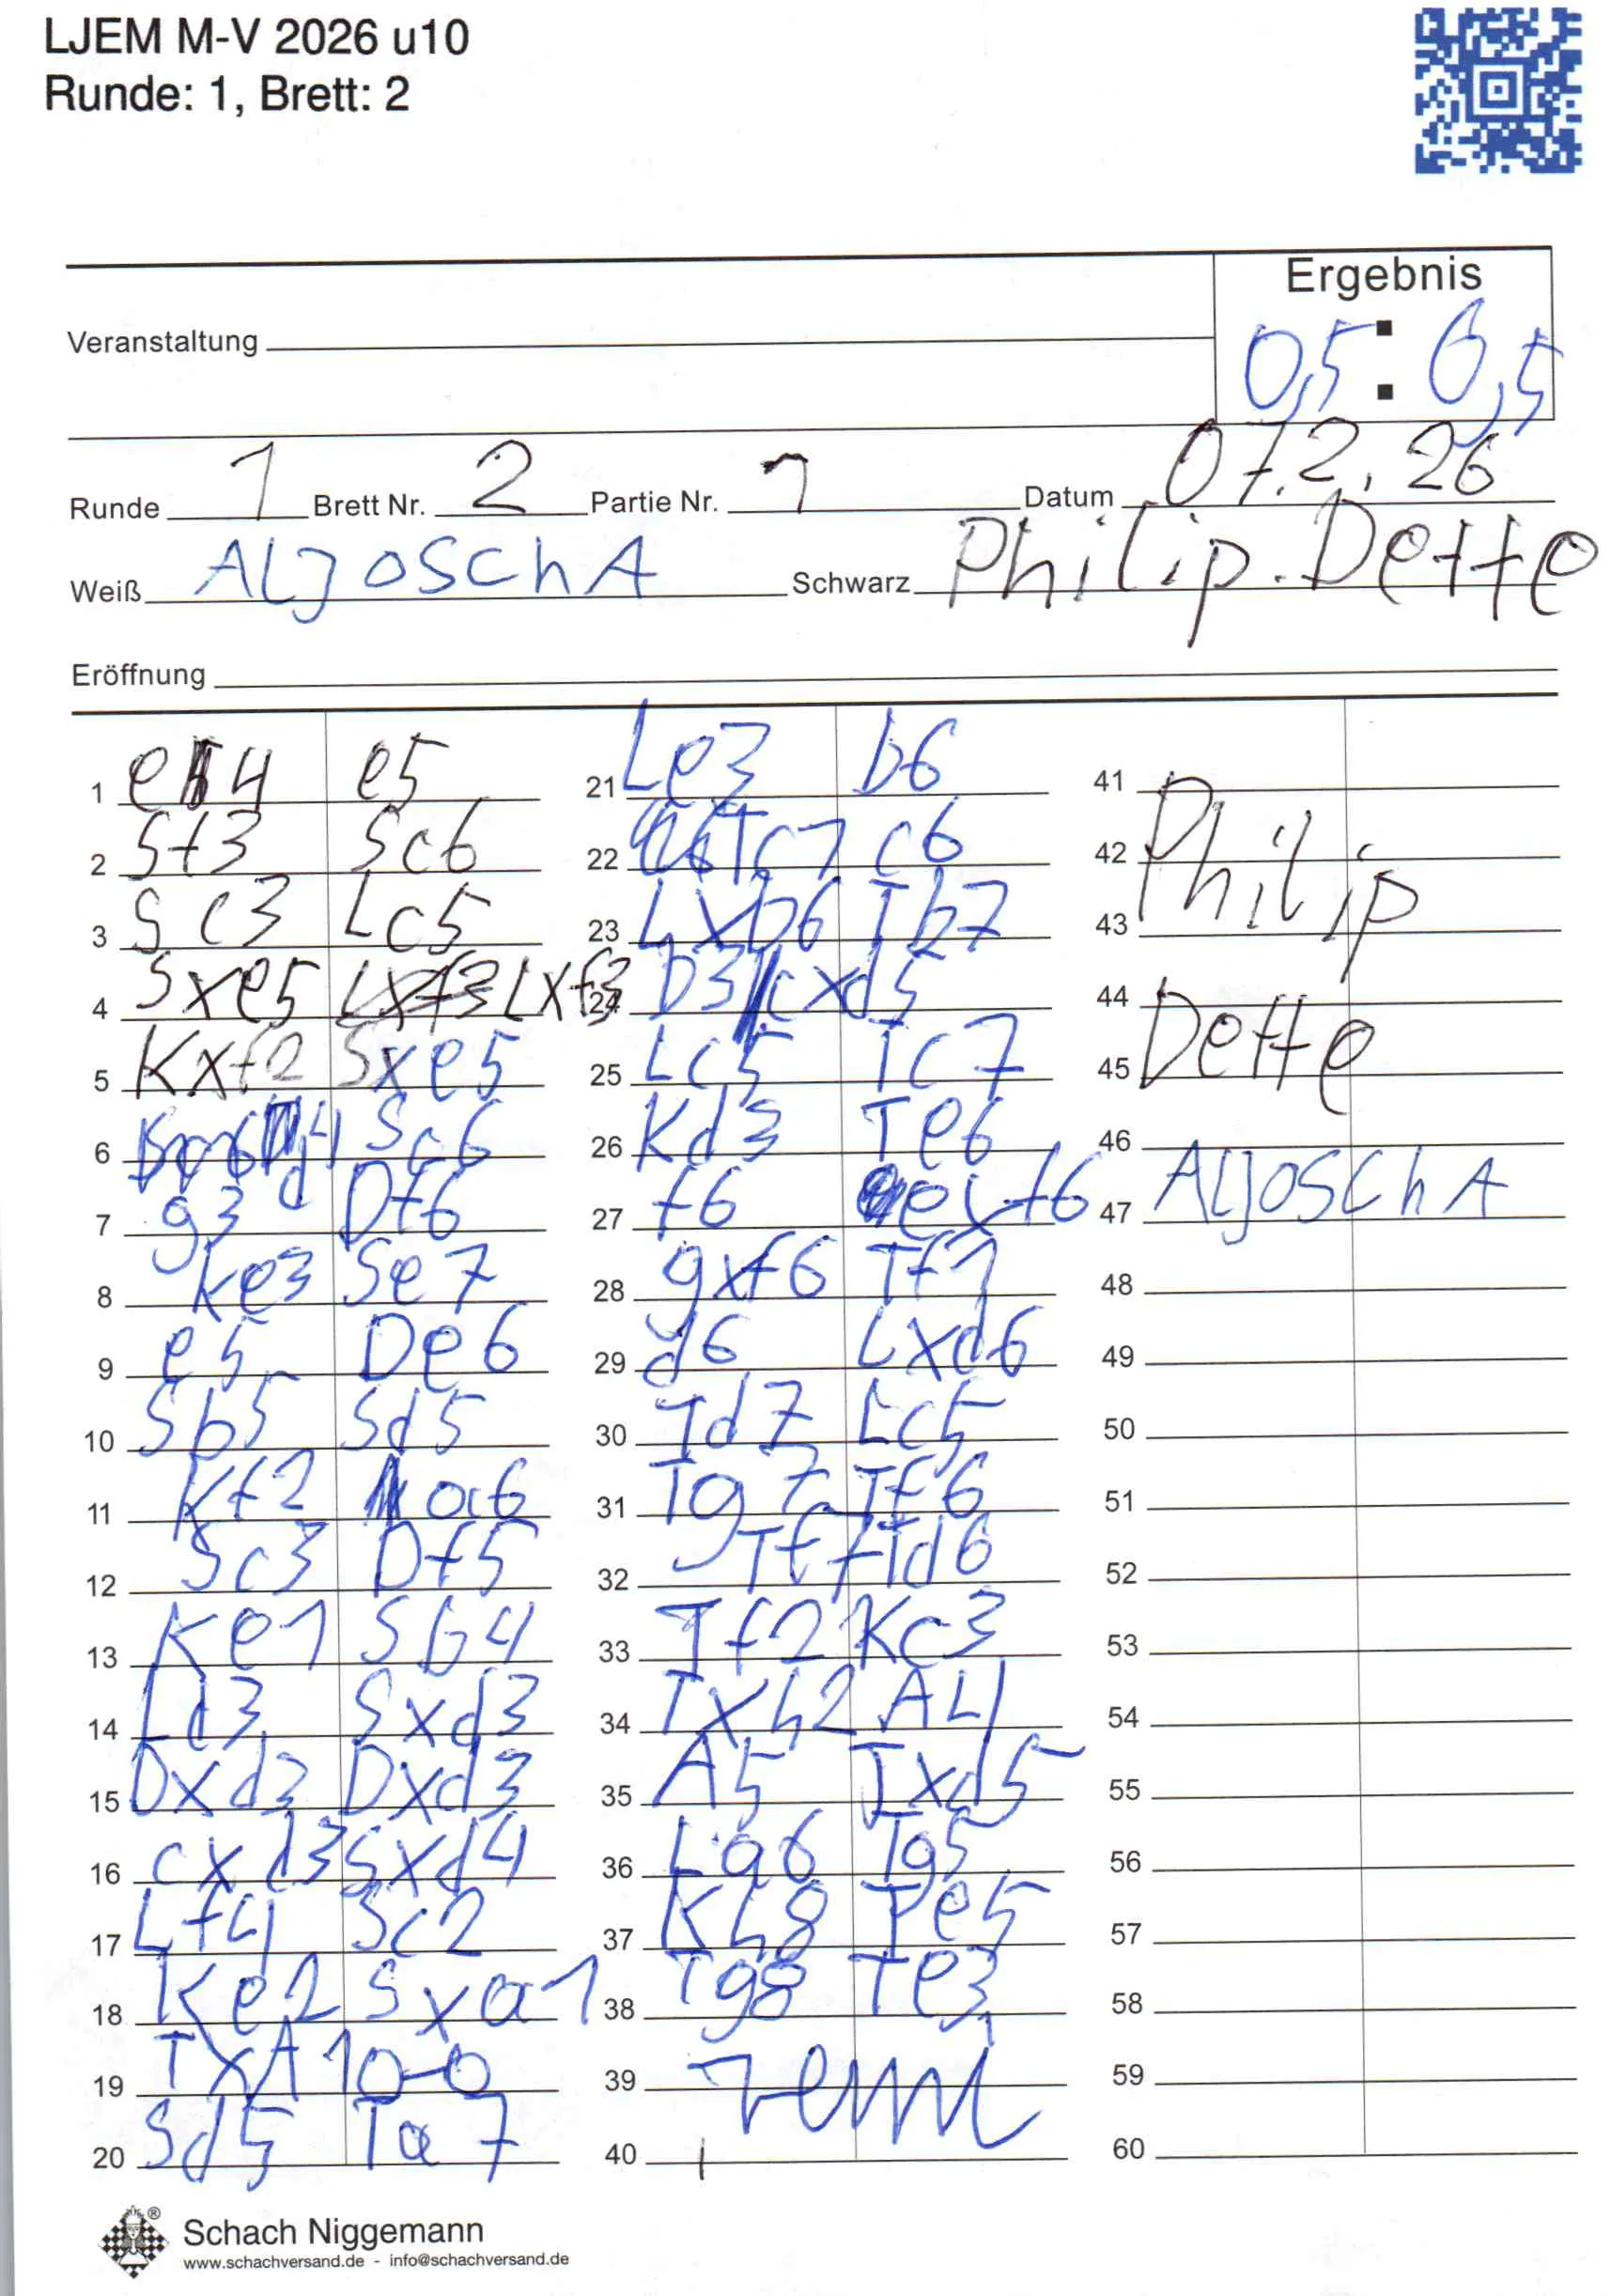 LJEM M-V 2026 u10
Runde: 1, Brett: 2
Ergebnis
Veranstaltung
0,5 : 0,5
Runde 1 Brett Nr. 2 Partie Nr. 1 Datum 07.2.26
Weiß ALJOSChA Schwarz Philip.Dette
Eröffnung
1 e4 e5
2 Sf3 Sc6
3 Sc3 Lc5
4 Sxe5 Lxf3 Lxf3
5 Kxf2 Sxe5
6 d4 Sc6
7 g3 Df6
8 Ke3 Se7
9 e5 De6
10 Sb5 Sd5
11 Kf2 a6
12 Sc3 Df5
13 Ke1 Sb4
14 Ld3 Sxd3
15 Dxd3 Dxd3
16 cxd3 Sxd4
17 Lf4 Sc2
18 Ke2 Sxa1
19 TxA1 0-0
20 Sd5 Ta7
21 Le3 b6
22 Tc7 c6
23 Lxb6 Tb7
24 b3 cxd5
25 Lc5 Tc7
26 Kd3 Te6
27 f6 exf6
28 gxf6 Tf7
29 d6 Lxd6
30 Td7 Lc5
31 Tg7 Tf6
32 Tf7 Td6
33 Tf2 Kc3
34 Txh2 A4
35 A5 Txd5
36 La6 Tg5
37 Kh8 Te5
38 Tg8 Te3
39 remi
40
41
42 Philip
43
44
45 Dette
46
47 ALJOSChA
48
49
50
51
52
53
54
55
56
57
58
59
60
Schach Niggemann
www.schachversand.de - info@schachversand.de